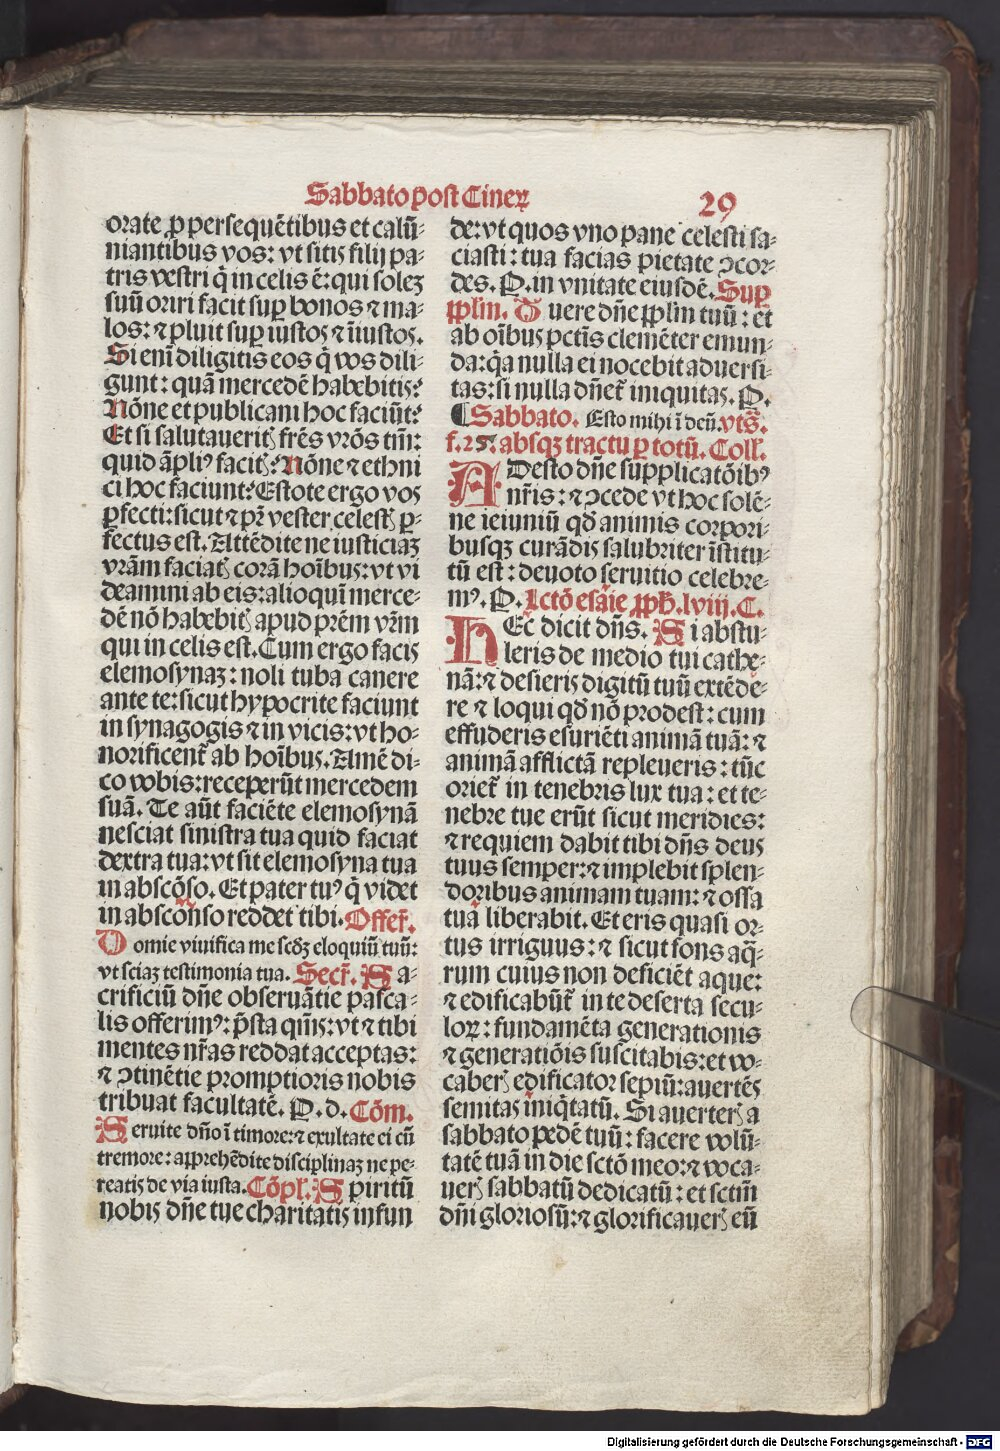 Sabbato post Cineꝝ
29
orate ꝓ persequētibus et calū⸗
niantibus vos: vt sitis filij pa⸗
tris vestri q̄ in celis ē: qui soleꝫ
suū oriri facit suꝑ bonos ⁊ ma⸗
los: ⁊ pluit suꝑ iustos ⁊ īiustos.
Si enī diligitis eos q̄ vos dili⸗
gunt: quā mercedē habebitis?
Nōne et publicani hoc faciūt?
Et si salutaueritꝭ frēs vrōs tm̄:
quid āpliꝰ facitꝭ? Nōne ⁊ ethni
ci hoc faciunt? Estote ergo vos
ꝑfecti: sicut ⁊ pr̄ vester celestꝭ ꝑ⸗
fectus est. Attēdite ne iusticiaꝫ
vrām faciatꝭ corā hoībus: vt vi
deamini ab eis: alioquī merce⸗
dē nō habebitꝭ apud prēm vr̄m
qui in celis est. Cum ergo facis
elemosynaꝫ: noli tuba canere
ante te: sicut hypocrite faciunt
in synagogis ⁊ in vicis: vt ho⸗
norificent᷑ ab hoībus. Amē di⸗
co vobis: receperūt mercedem
suā. Te aūt faciēte elemosynā
nesciat sinistra tua quid faciat
dextra tua: vt sit elemosyna tua
in abscōso. Et pater tuꝰ q̄ videt
in abscōnso reddet tibi. Offer̄.
Domie viuifica me scd̄ꝫ eloquiū tuū:
vt sciaꝫ testimonia tua. Secr̄. Sa⸗
crificiū dn̄e obseruātie pasca⸗
lis offerimꝰ: p̄sta qm̄s: vt ⁊ tibi
mentes nr̄as reddat acceptas:
⁊ ↄtinētie promptioris nobis
tribuat facultatē. P. d. Cōm.
Seruite dn̄o ī timore: ⁊ exultate ei cū
tremore: apprehēdite disciplinaꝫ ne pe⸗
reatis de via iusta. Cōpl̄. Spiritū
nobis dn̄e tue charitatis infun
de: vt quos vno pane celesti sa⸗
ciasti: tua facias pietate ↄcor⸗
des. P. in vnitate eiusdē. Suꝑ
pplm̄. Tuere dn̄e pplm̄ tuū: et
ab oībus pctīs clemēter emun⸗
da: q̄a nulla ei nocebit aduersi⸗
tas: si nulla dn̄et᷑ iniquitas. P.
¶Sabbato. Esto mihi ī deū. vts̄.
f. 25. absqꝫ tractu ꝑ totū. Coll̄.
ADesto dn̄e supplicatōibꝰ
nr̄is: ⁊ ↄcede vt hoc solē⸗
ne ieiuniū qd̄ animis corpori⸗
busqꝫ curādis salubriter īstitu⸗
tū est: deuoto seruitio celebre⸗
mꝰ. P. Lctō esaie ꝓph̄. lviij. C.
HEc dicit dn̄s. Si abstu⸗
leris de medio tui cathe⸗
nā: ⁊ desieris digitū tuū extēde⸗
re ⁊ loqui qd̄ nō prodest: cum
effuderis esuriēti animā tuā: ⁊
animā afflictā repleueris: tūc
oriet᷑ in tenebris lux tua: et te⸗
nebre tue erūt sicut meridies:
⁊ requiem dabit tibi dn̄s deus
tuus semper: ⁊ implebit splen⸗
doribus animam tuam: ⁊ ossa
tua liberabit. Et eris quasi or⸗
tus irriguus: ⁊ sicut fons aq̄⸗
rum cuius non deficiēt aque:
⁊ edificabūt᷑ in te deserta secu⸗
loꝝ: fundamēta generationis
⁊ generatiōis suscitabis: et vo⸗
caberꝭ edificator sepiū: auertēs
semitas iniq̄tatū. Si auerterꝭ a
sabbato pedē tuū: facere volū⸗
tatē tuā in die sctō meo: ⁊ voca⸗
uerꝭ sabbatū dedicatū: et sctm̄
dn̄i gloriosū: ⁊ glorificauerꝭ eū
Digitalisierung gefördert durch die Deutsche Forschungsgemeinschaft - DFG